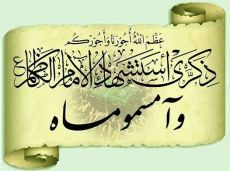 عَظَّمَ اللهُ أُجُورَنَا وَأُجُورَكُم
ذكرى استشهاد الإمام الكاظم ع
وآمسموماه